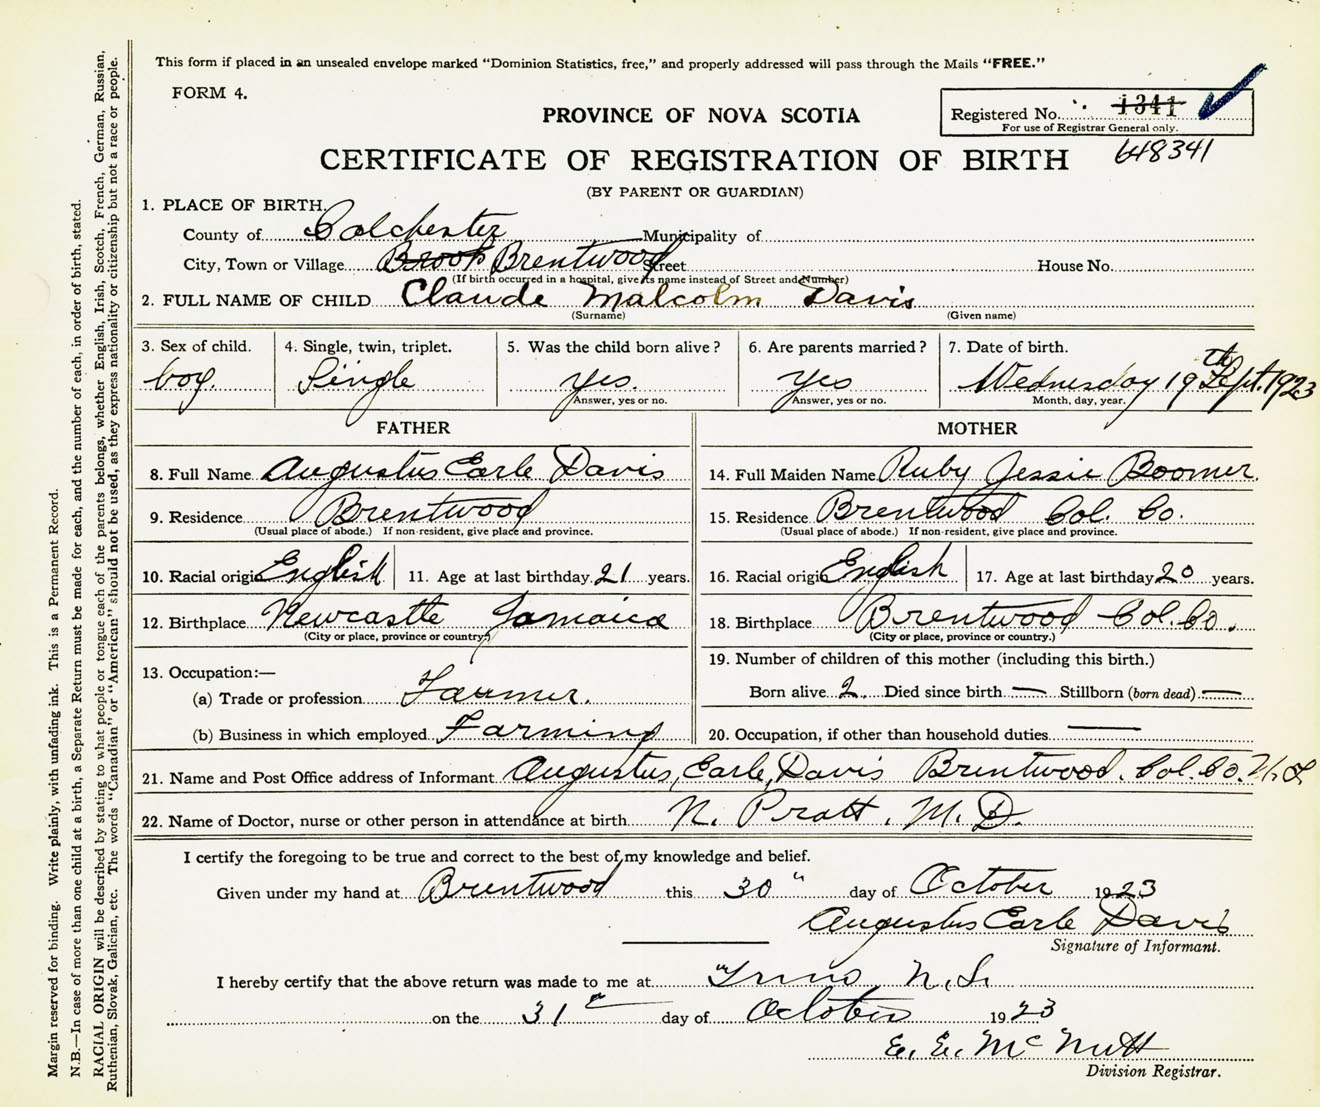 This form if placed in an unsealed envelope marked "Dominion Statistics, free," and properly addressed will pass through the Mails "FREE."
FORM 4.
PROVINCE OF NOVA SCOTIA
Registered No. 1341
For use of Registrar General only.
648341
CERTIFICATE OF REGISTRATION OF BIRTH
(BY PARENT OR GUARDIAN)
1. PLACE OF BIRTH.
County of Colchester Municipality of
City, Town or Village Brook Brentwood Street House No.
(If birth occurred in a hospital, give its name instead of Street and Number)
2. FULL NAME OF CHILD Claude Malcolm Davis
(Surname) (Given name)
3. Sex of child. 4. Single, twin, triplet. 5. Was the child born alive? 6. Are parents married? 7. Date of birth.
boy. Single yes. yes Wednesday 19th Sept. 1923
Answer, yes or no. Answer, yes or no. Month, day, year.
FATHER MOTHER
8. Full Name Augustus Earle Davis 14. Full Maiden Name Ruby Jessie Boomer.
9. Residence Brentwood 15. Residence Brentwood Col. Co.
(Usual place of abode.) If non-resident, give place and province. (Usual place of abode.) If non-resident, give place and province.
10. Racial origin English 11. Age at last birthday 21 years. 16. Racial origin English 17. Age at last birthday 20 years.
12. Birthplace Newcastle Jamaica 18. Birthplace Brentwood Col. Co.
(City or place, province or country.) (City or place, province or country.)
13. Occupation:— 19. Number of children of this mother (including this birth.)
(a) Trade or profession Farmer. Born alive 2. Died since birth — Stillborn (born dead) —
(b) Business in which employed Farming 20. Occupation, if other than household duties —
21. Name and Post Office address of Informant Augustus, Earle, Davis Brentwood. Col. Co. N. S.
22. Name of Doctor, nurse or other person in attendance at birth N. Pratt, M. D.
I certify the foregoing to be true and correct to the best of my knowledge and belief.
Given under my hand at Brentwood this 30" day of October 1923
Augustus Earle Davis
Signature of Informant.
I hereby certify that the above return was made to me at Truro N. S.
on the 31st day of October 1923
E. E. McNutt
Division Registrar.
Margin reserved for binding. Write plainly, with unfading ink. This is a Permanent Record.
N.B.—In case of more than one child at a birth, a Separate Return must be made for each, and the number of each, in order of birth, stated.
RACIAL ORIGIN will be described by stating to what people or tongue each of the parents belongs, whether English, Irish, Scotch, French, German, Russian,
Ruthenian, Slovak, Galician, etc. The words "Canadian" or "American" should not be used, as they express nationality or citizenship but not a race or people.